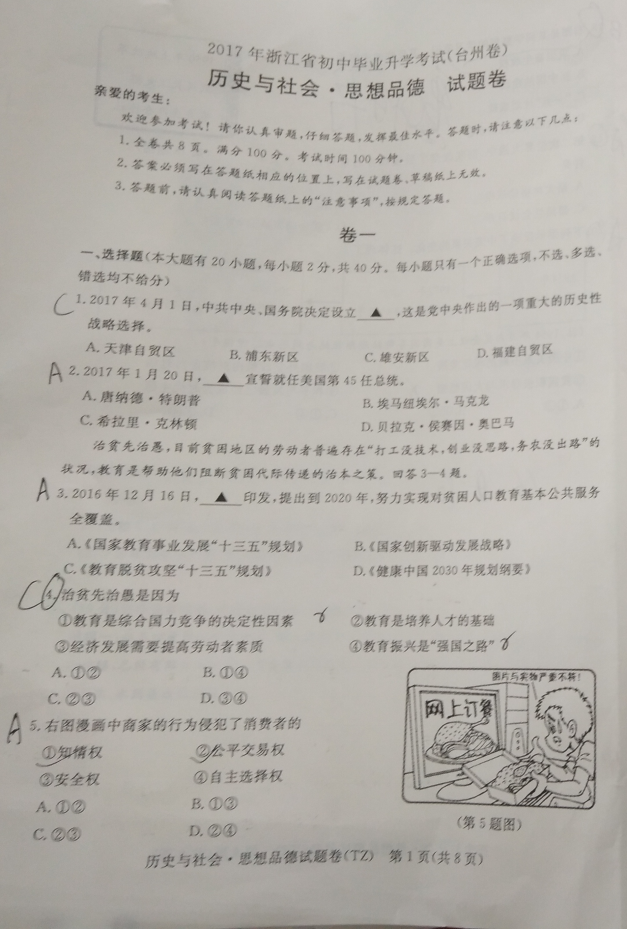 2017年浙江省初中毕业升学考试(台州卷)
历史与社会·思想品德 试题卷
亲爱的考生:
欢迎参加考试!请你认真审题,仔细答题,发挥最佳水平。答题时,请注意以下几点:
1.全卷共8页。满分100分。考试时间100分钟。
2.答案必须写在答题纸相应的位置上,写在试题卷、草稿纸上无效。
3.答题前,请认真阅读答题纸上的“注意事项”,按规定答题。
卷一
一、选择题(本大题有20小题,每小题2分,共40分。每小题只有一个正确选项,不选、多选、
错选均不给分)
C 1.2017年4月1日,中共中央、国务院决定设立 ▲ ,这是党中央作出的一项重大的历史性
战略选择。
A.天津自贸区 B.浦东新区 C.雄安新区 D.福建自贸区
A 2.2017年1月20日, ▲ 宣誓就任美国第45任总统。
A.唐纳德·特朗普 B.埃马纽埃尔·马克龙
C.希拉里·克林顿 D.贝拉克·侯赛因·奥巴马
治贫先治愚,目前贫困地区的劳动者普遍存在“打工没技术,创业没思路,务农没出路”的
状况,教育是帮助他们阻断贫困代际传递的治本之策。回答3—4题。
A 3.2016年12月16日, ▲ 印发,提出到2020年,努力实现对贫困人口教育基本公共服务
全覆盖。
A.《国家教育事业发展“十三五”规划》 B.《国家创新驱动发展战略》
C.《教育脱贫攻坚“十三五”规划》 D.《健康中国2030年规划纲要》
C 4.治贫先治愚是因为
①教育是综合国力竞争的决定性因素 ②教育是培养人才的基础
③经济发展需要提高劳动者素质 ④教育振兴是“强国之路”
A.①② B.①④
C.②③ D.③④
图片与实物严重不符!
网上订餐
A 5.右图漫画中商家的行为侵犯了消费者的
①知情权 ②公平交易权
③安全权 ④自主选择权
A.①② B.①③
C.②③ D.②④
(第5题图)
历史与社会·思想品德试题卷(TZ) 第1页(共8页)